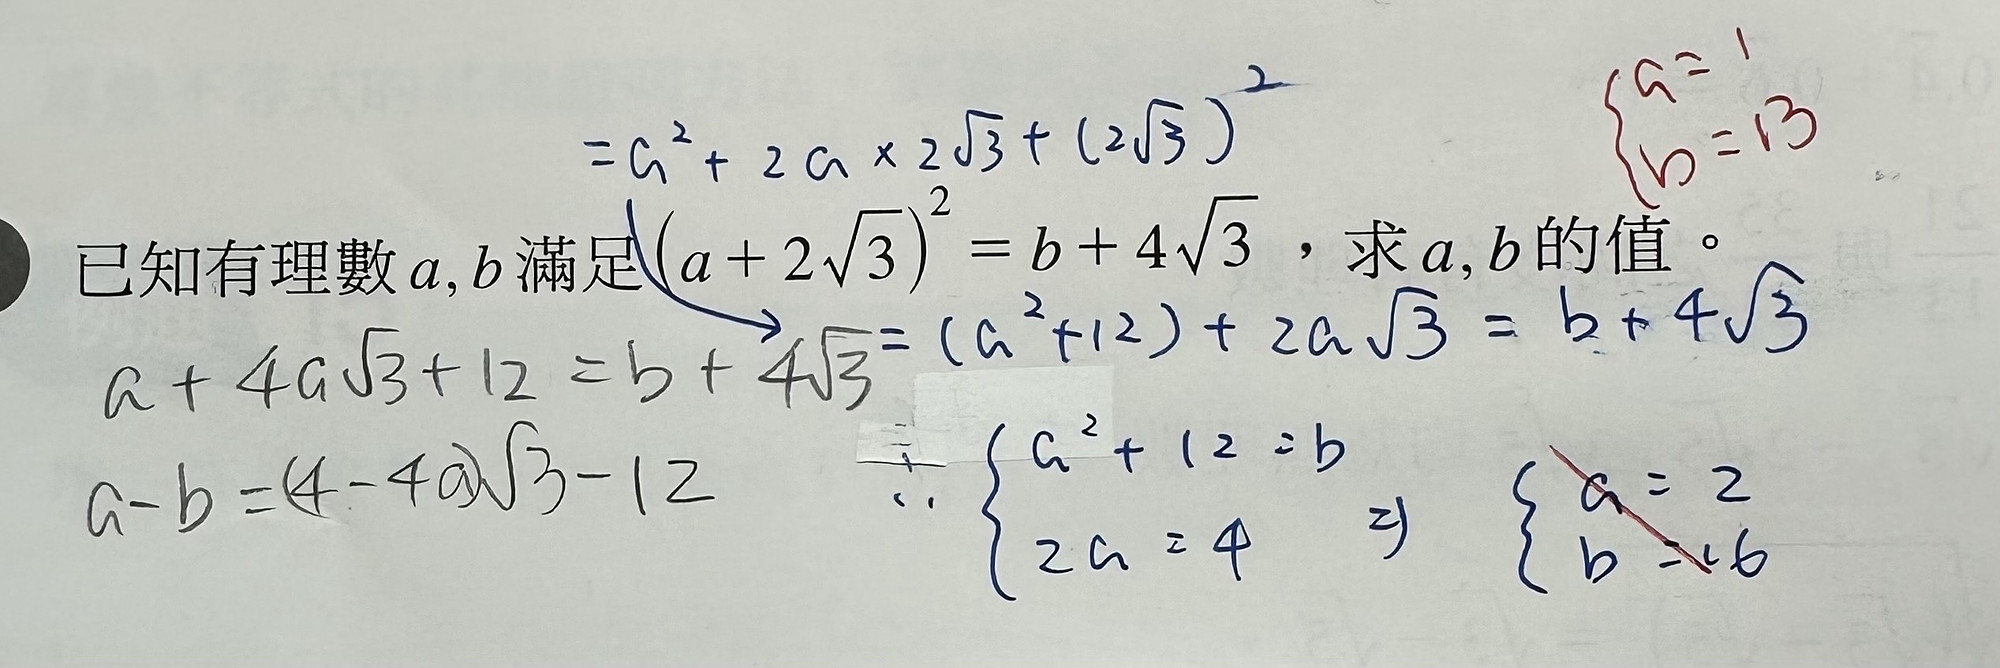 = a² + 2a × 2√3 + (2√3)²
{ a = 1
b = 13
已知有理數 a, b 滿足 (a + 2√3)² = b + 4√3，求 a, b 的值。
= (a² + 12) + 2a√3 = b + 4√3
a + 4a√3 + 12 = b + 4√3
a - b = (4 - 4a)√3 - 12
∴ { a² + 12 = b
2a = 4
⇒ { a = 2
b = 16